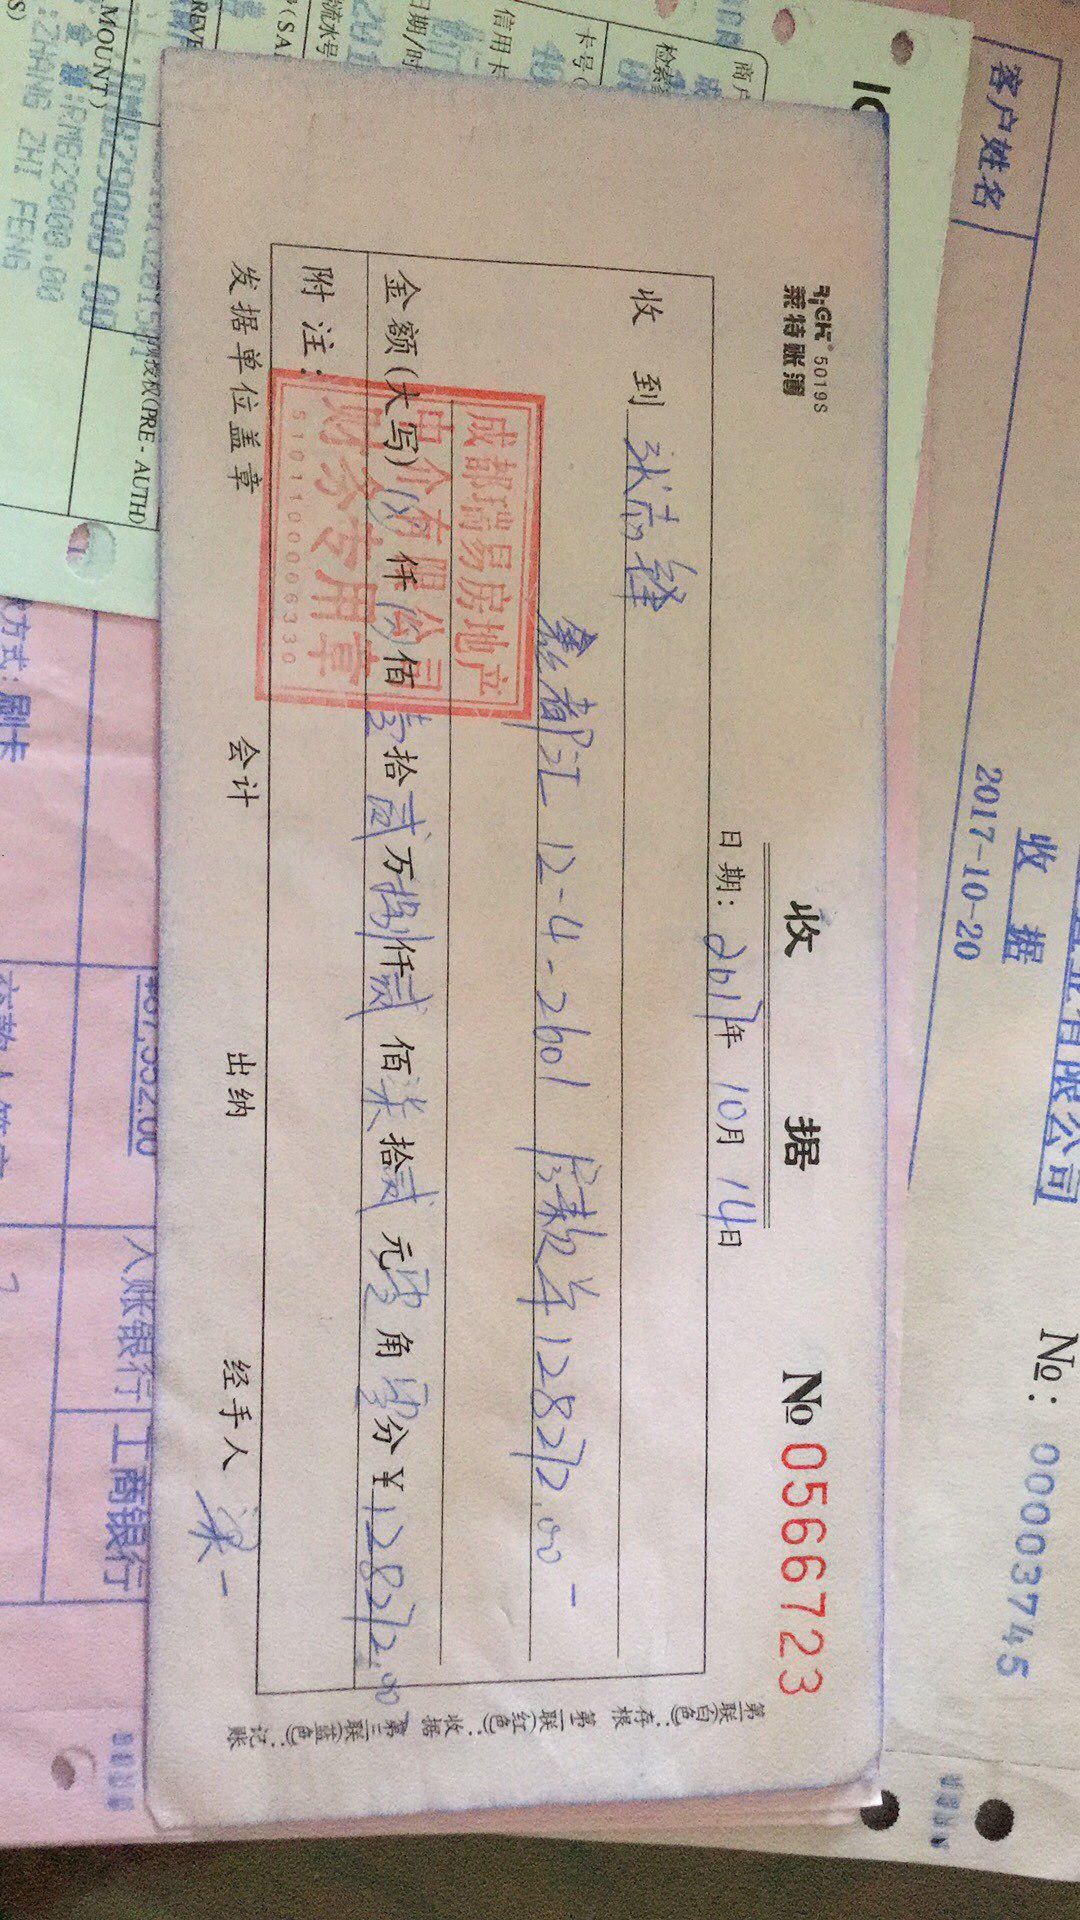 莱特账簿 5019S
收 据
№ 0566723
日期: 2017年 10月 14日
收 到 张志锋
鑫都汇 12-4-2601 房款羊128272.00-
金额(大写) 仟 佰 壹拾 贰万 捌仟 贰佰 柒拾 贰元 零角 零分 ¥128272.00
附 注:
发据单位盖章 会计 出纳 经手人 梁一
成都瑞易房地产
中介有限公司
财务专用章
5101100066330
第一联(白色):存根 第二联(红色):收据 第三联(蓝色):记账
客户姓名
收 据
2017-10-20
业有限公司
№: 00003745
方式:刷卡
入账银行
工商银行
RMB29000.00
RMB29000.00
ZHANG ZHI FENG
(PRE-AUTH)
MOUNT)